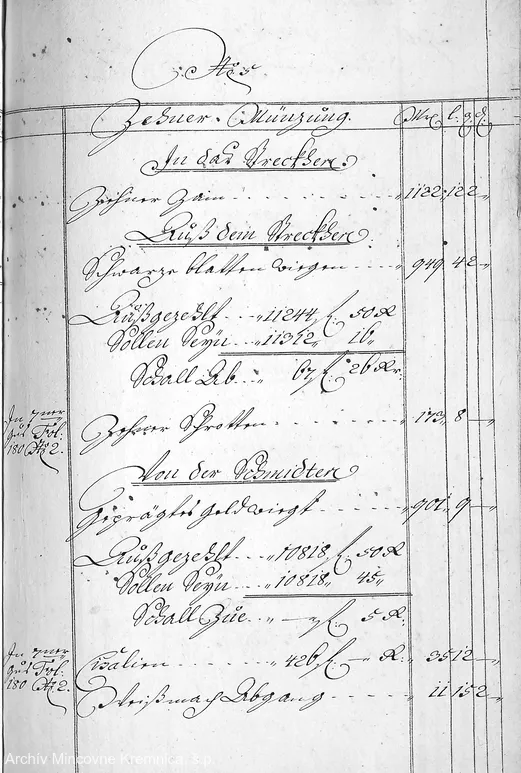 No. 5
Zehner-Münzung. Mk. l. q. d.
In das Streckhen.
Zehner Zain 1122. 12 2 „
Auß dem Streckhen.
Schwarze blatten wiegen 949 4 2 „
Außgezehlt 11244 f. 50 K
Sollen Seyn 11312 16
Schall Ab 67 f. 26 Kr.
In 7ner
gus Fol:
180 No. 2.
Zehner Schrotten 173 8 —
Von der Schmidten
Geprägtes Geld wiegt 901 9 —
Außgezehlt 10818 f. 50 K
Sollen Seyn 10818 45
Schall Zue — f. 5 K.
In 7ner
gus Fol:
180 No. 2.
Cisalien 426 f. — K. 35 12 —
Weißmach Abgang 11 15 2
Archív Mincovne Kremnica, š.p.